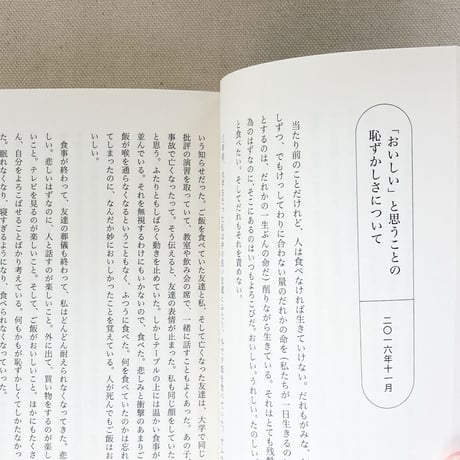 「おいしい」と思うことの
恥ずかしさについて
二〇一六年十一月
当たり前のことだけれど、人は食べなければ生きていけない。だれもがみな、
しずつ、でもけっしてわりに合わない量のだれかの命を（私たちが一日生きるの
とするのは、だれかの一生ぶんの命だ）削りながら生きている。それはとても残
為のはずなのに、そこにあるのはいつもよろこびだ。おいしい。うれしい。たのし
と食べたい。そしてだれもそれを責めない。
いう知らせだった。ご飯を食べていた友達と私、そして亡くなった友達は、大学で同じ
批評の演習を取っていて、教室や飲み会の席で、一緒に話すこともよくあった。あの子、
事故で亡くなったって。そう伝えると、友達の表情が止まった。私も同じ顔をしていた
と思う。ふたりともしばらく動きを止めていた。しかしテーブルの上には温かい食事が
並んでいる。それを無視するわけにもいかないので、食べた。悲しみと衝撃のあまりご
飯が喉を通らなくなるということもなく、ふつうに食べた。何を食べていたのかは忘れ
てしまったのに、なんだか妙においしかったことを覚えている。人が死んでもご飯はお
いしい。
食事が終わって、友達の葬儀も終わって、私はどんどん耐えられなくなってきた。悲
しい。悲しいはずなのに、人と話すのが楽しいこと。外に出て、買い物をするのが楽し
いこと。テレビを見るのが楽しいこと。そして、ご飯がおいしいこと。ほかにもたくさ
ん、自分をよろこばせることばかり考えている。何もかもが恥ずかしくてしかたなかっ
た。眠れなくなり、寝すぎるようになり、食べられなくなっていった。